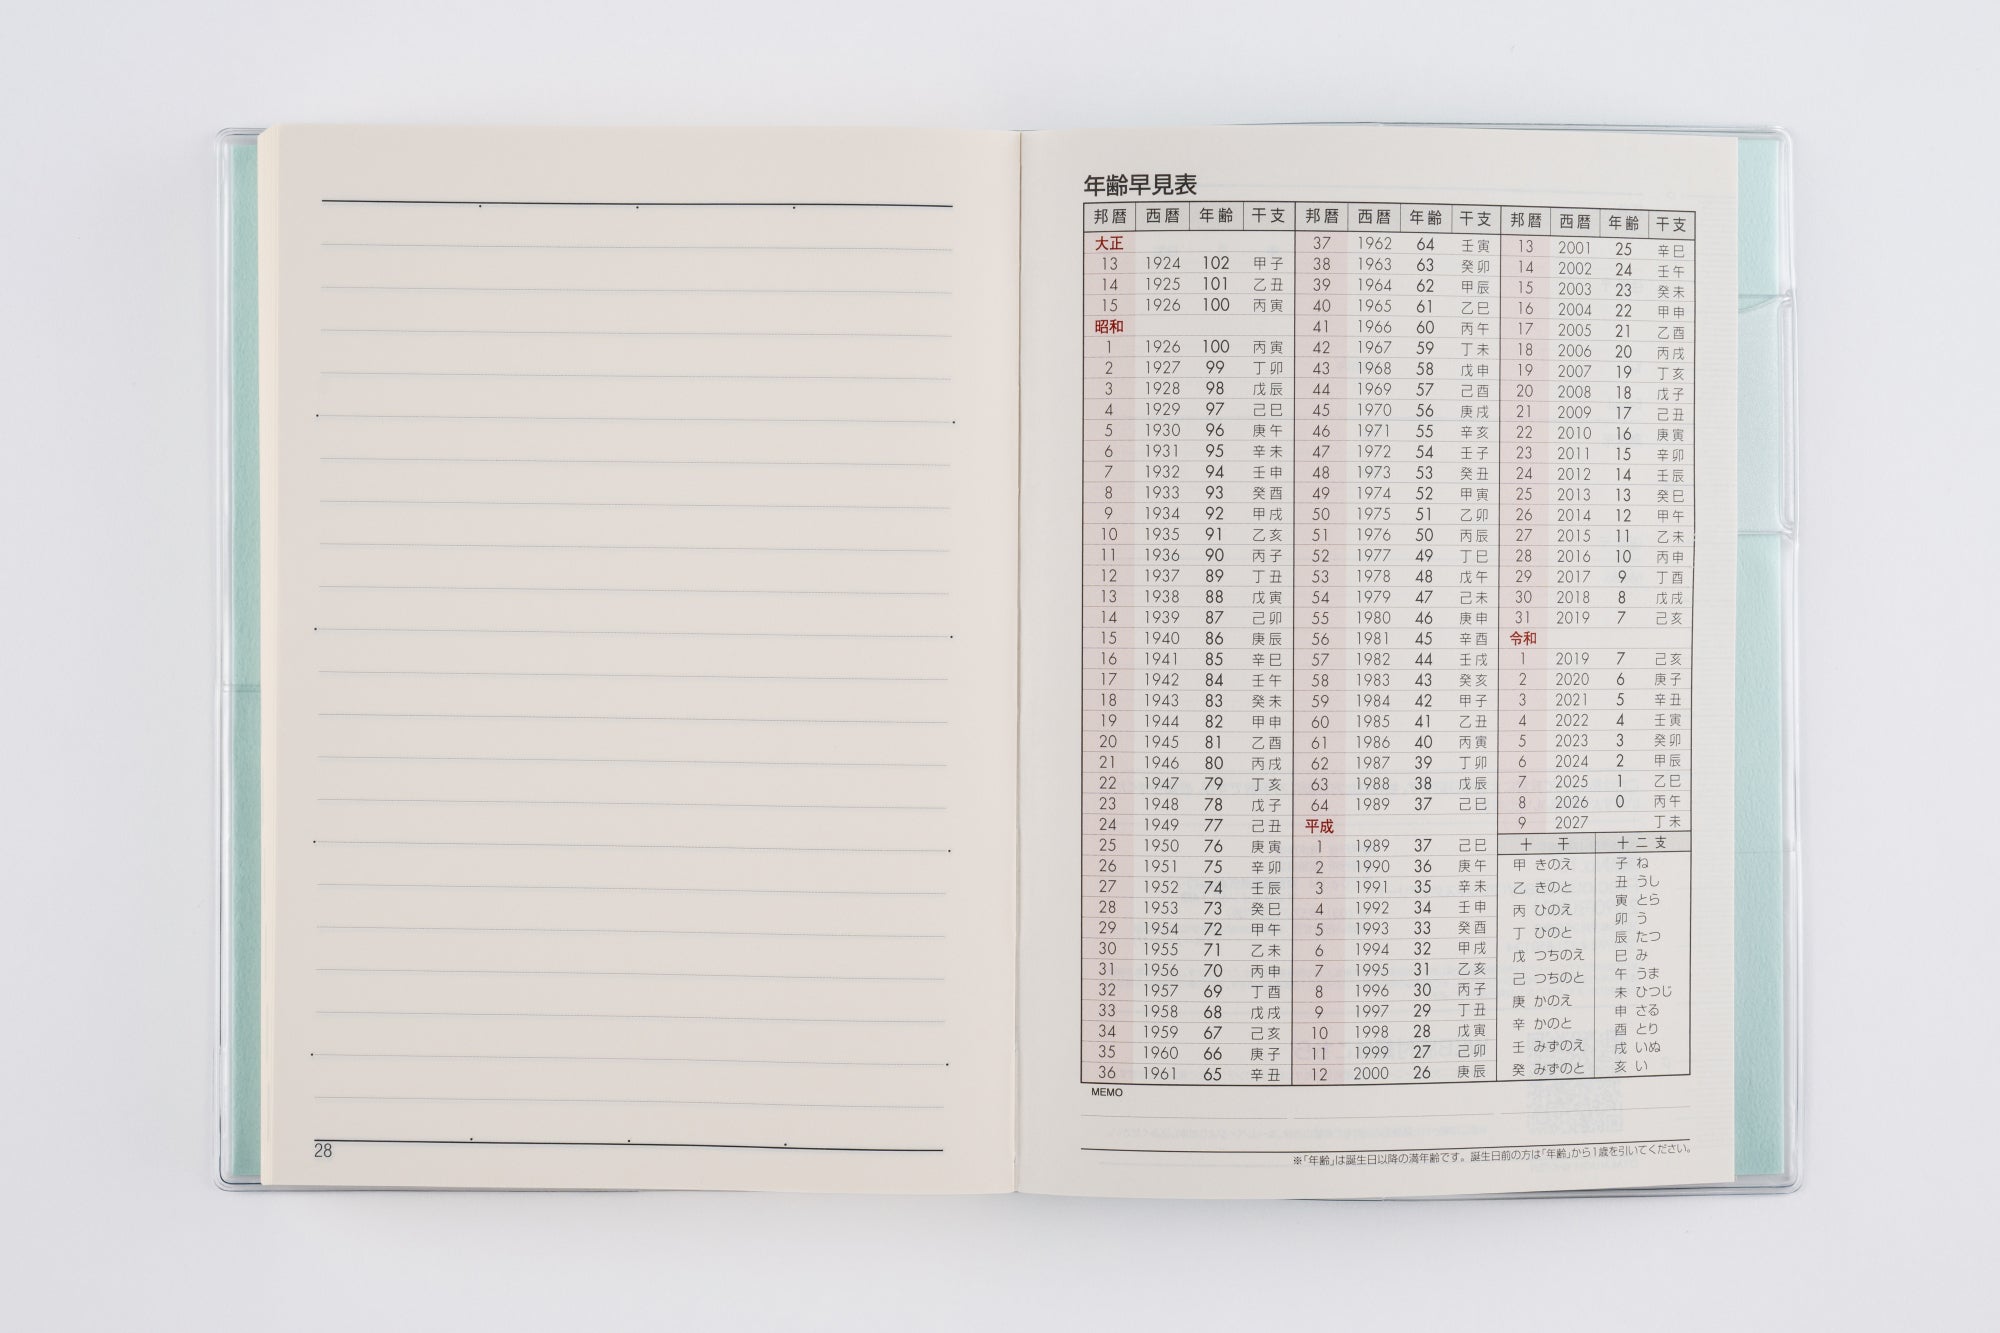 28
年齢早見表
邦暦 西暦 年齢 干支
大正
13 1924 102 甲子
14 1925 101 乙丑
15 1926 100 丙寅
昭和
1 1926 100 丙寅
2 1927 99 丁卯
3 1928 98 戊辰
4 1929 97 己巳
5 1930 96 庚午
6 1931 95 辛未
7 1932 94 壬申
8 1933 93 癸酉
9 1934 92 甲戌
10 1935 91 乙亥
11 1936 90 丙子
12 1937 89 丁丑
13 1938 88 戊寅
14 1939 87 己卯
15 1940 86 庚辰
16 1941 85 辛巳
17 1942 84 壬午
18 1943 83 癸未
19 1944 82 甲申
20 1945 81 乙酉
21 1946 80 丙戌
22 1947 79 丁亥
23 1948 78 戊子
24 1949 77 己丑
25 1950 76 庚寅
26 1951 75 辛卯
27 1952 74 壬辰
28 1953 73 癸巳
29 1954 72 甲午
30 1955 71 乙未
31 1956 70 丙申
32 1957 69 丁酉
33 1958 68 戊戌
34 1959 67 己亥
35 1960 66 庚子
36 1961 65 辛丑
邦暦 西暦 年齢 干支
37 1962 64 壬寅
38 1963 63 癸卯
39 1964 62 甲辰
40 1965 61 乙巳
41 1966 60 丙午
42 1967 59 丁未
43 1968 58 戊申
44 1969 57 己酉
45 1970 56 庚戌
46 1971 55 辛亥
47 1972 54 壬子
48 1973 53 癸丑
49 1974 52 甲寅
50 1975 51 乙卯
51 1976 50 丙辰
52 1977 49 丁巳
53 1978 48 戊午
54 1979 47 己未
55 1980 46 庚申
56 1981 45 辛酉
57 1982 44 壬戌
58 1983 43 癸亥
59 1984 42 甲子
60 1985 41 乙丑
61 1986 40 丙寅
62 1987 39 丁卯
63 1988 38 戊辰
64 1989 37 己巳
平成
1 1989 37 己巳
2 1990 36 庚午
3 1991 35 辛未
4 1992 34 壬申
5 1993 33 癸酉
6 1994 32 甲戌
7 1995 31 乙亥
8 1996 30 丙子
9 1997 29 丁丑
10 1998 28 戊寅
11 1999 27 己卯
12 2000 26 庚辰
邦暦 西暦 年齢 干支
13 2001 25 辛巳
14 2002 24 壬午
15 2003 23 癸未
16 2004 22 甲申
17 2005 21 乙酉
18 2006 20 丙戌
19 2007 19 丁亥
20 2008 18 戊子
21 2009 17 己丑
22 2010 16 庚寅
23 2011 15 辛卯
24 2012 14 壬辰
25 2013 13 癸巳
26 2014 12 甲午
27 2015 11 乙未
28 2016 10 丙申
29 2017 9 丁酉
30 2018 8 戊戌
31 2019 7 己亥
令和
1 2019 7 己亥
2 2020 6 庚子
3 2021 5 辛丑
4 2022 4 壬寅
5 2023 3 癸卯
6 2024 2 甲辰
7 2025 1 乙巳
8 2026 0 丙午
9 2027 丁未
十干
甲 きのえ
乙 きのと
丙 ひのえ
丁 ひのと
戊 つちのえ
己 つちのと
庚 かのえ
辛 かのと
壬 みずのえ
癸 みずのと
十二支
子 ね
丑 うし
寅 とら
卯 う
辰 たつ
巳 み
午 うま
未 ひつじ
申 さる
酉 とり
戌 いぬ
亥 い
MEMO
※「年齢」は誕生日以降の満年齢です。誕生日前の方は「年齢」から1歳を引いてください。